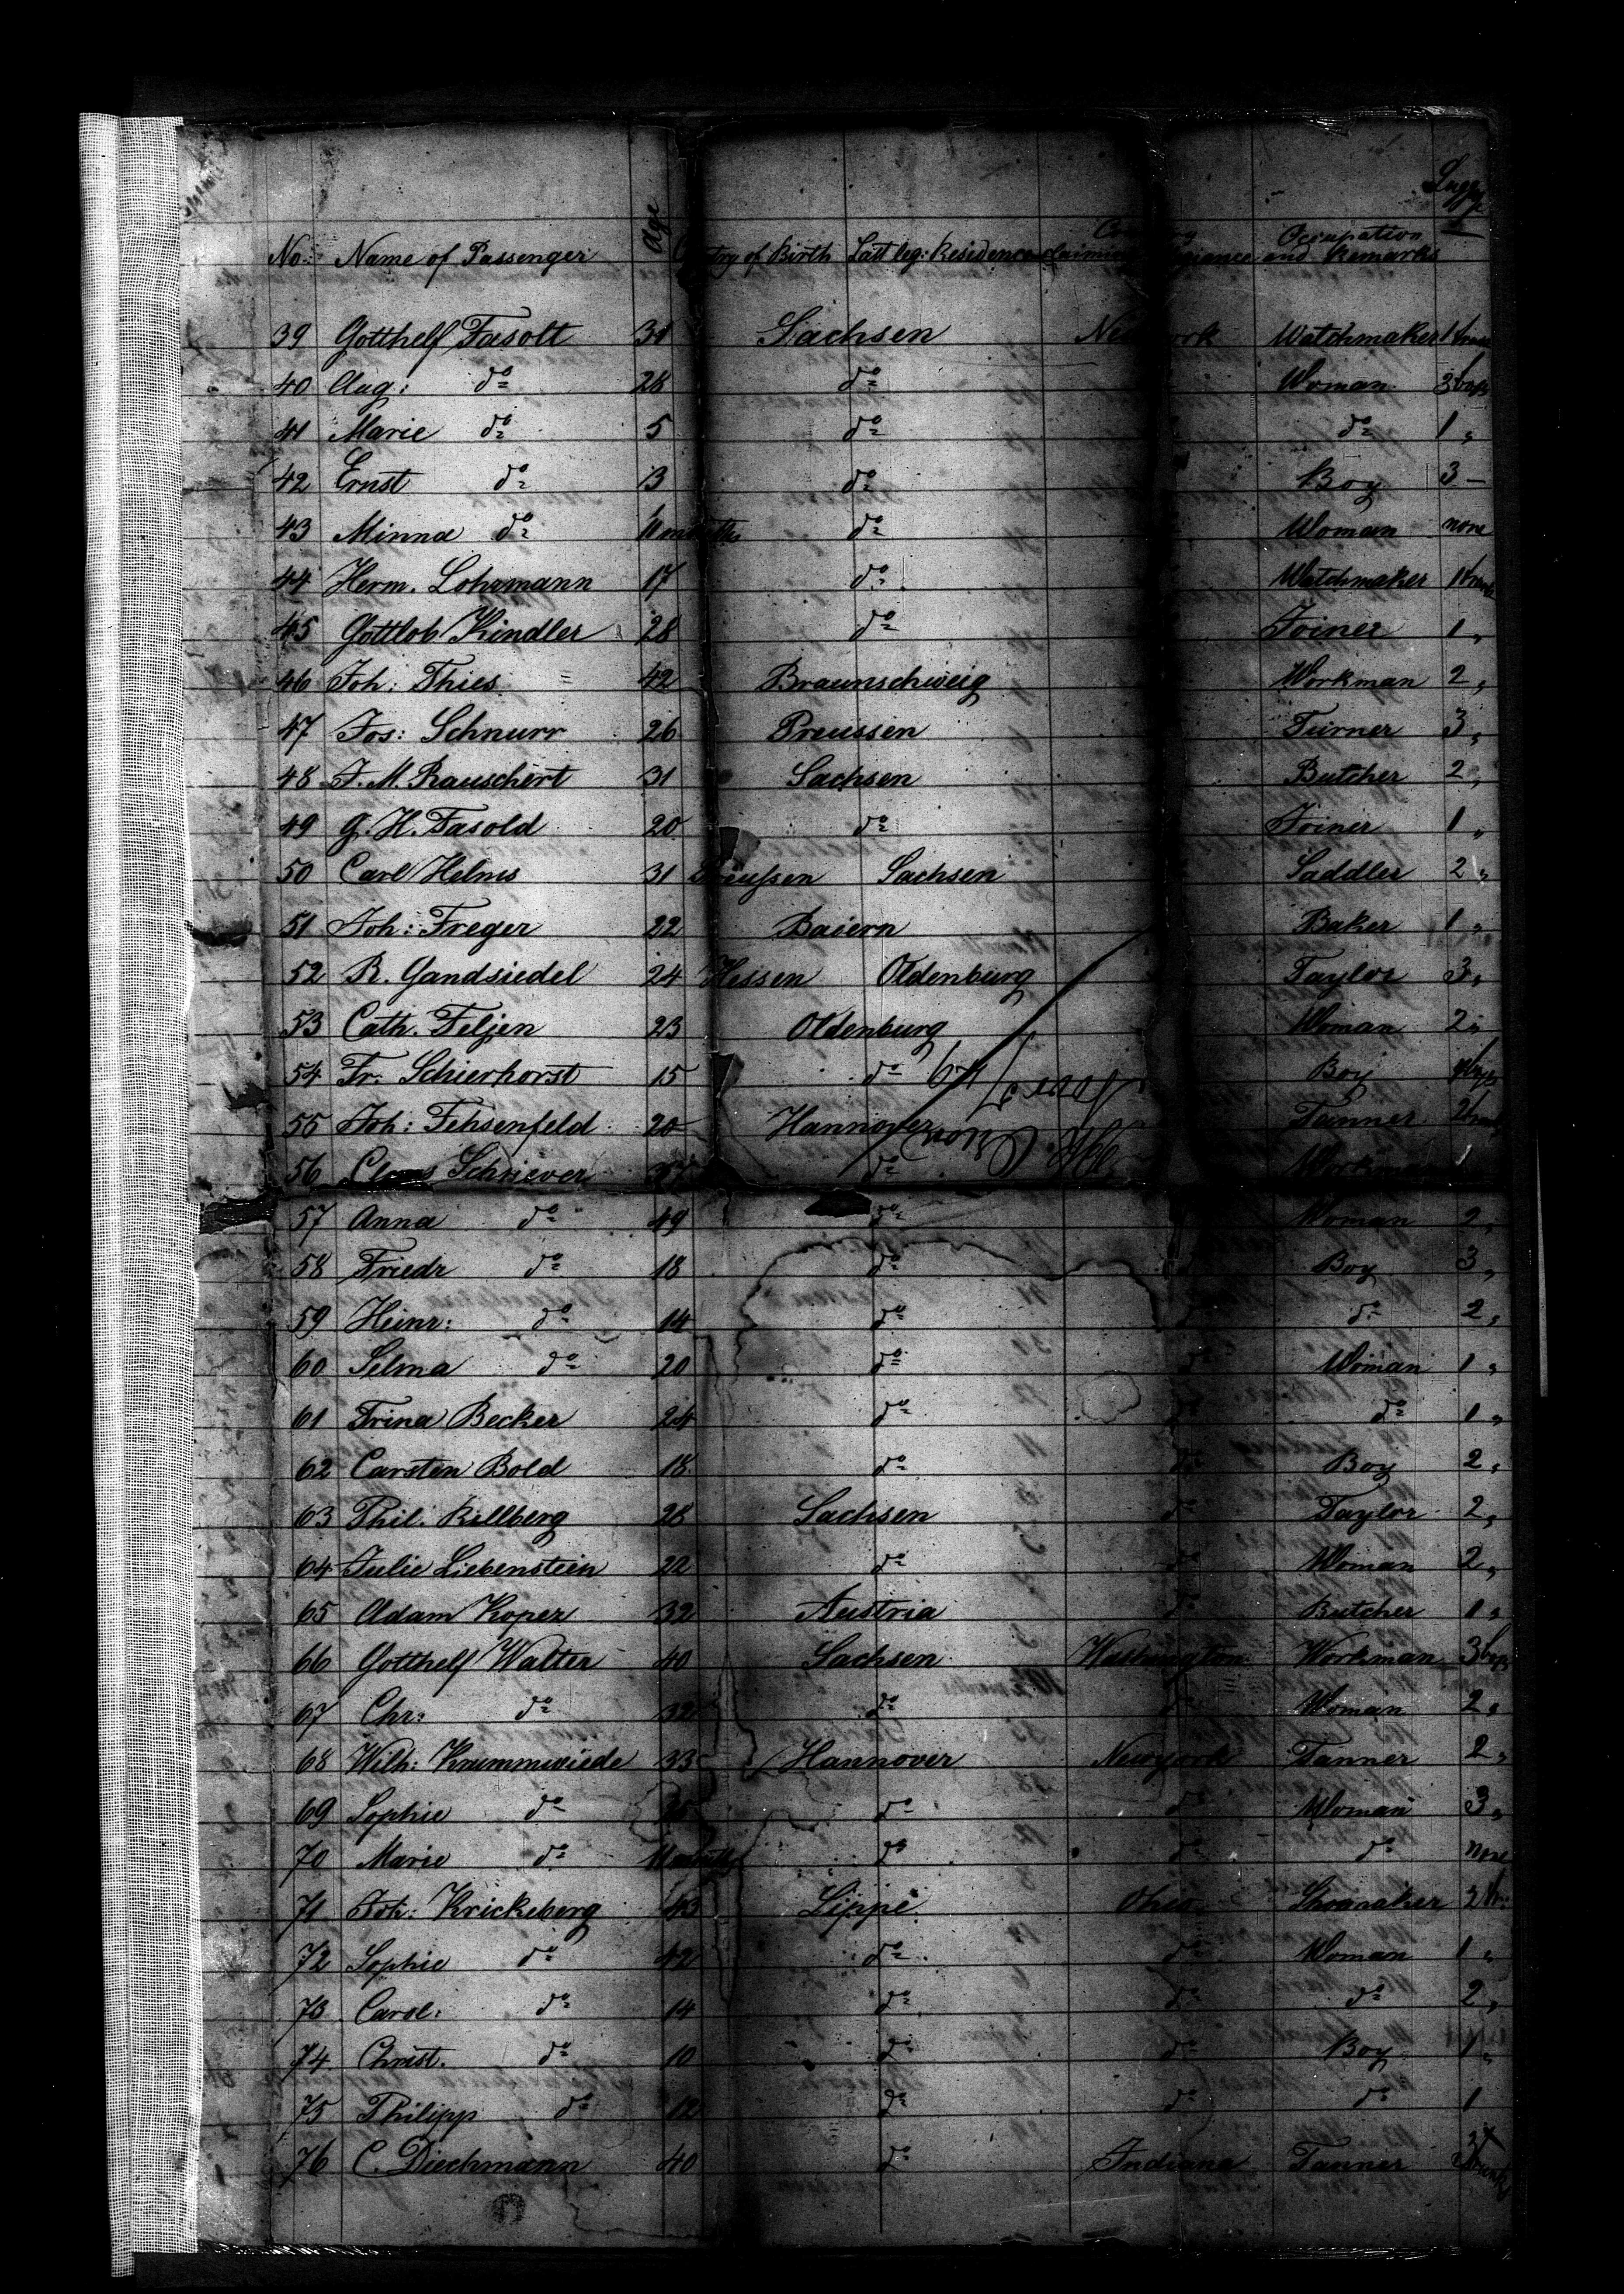 Lugg
No: Name of Passenger Age Country of Birth Last leg: Residence claiming Occupation and Remarks
39 Gotthelf Fasolt Sachsen New York Watchmaker 1
40 Aug: do 28 do Woman 3 boxs
41 Marie do 5 do do 1 "
42 Ernst do 3 do Boy 3 —
43 Minna do do Woman none
44 Herm. Lohrmann 17 do Watchmaker 1 trunk
45 Gottlob Kindler 28 do Joiner 1 "
46 Joh: Thies 42 Braunschweig Workman 2 "
47 Jos: Schnurr 26 Preussen Turner 3 "
48 J. M. Rauschert 31 Sachsen Butcher 2 "
49 G. H. Fasold 20 do Joiner 1 "
50 Carl Helms 31 Preußen Sachsen Saddler 2 "
51 Joh: Freger 22 Baiern Baker 1 "
52 R. Gandsiedel 24 Hessen Oldenburg Taylor 3 "
53 Cath. Feljen 23 Oldenburg Woman 2 "
54 Fr. Schierhorst 15 do Boy
55 Joh: Fehsenfeld 20 Hannover Tanner 2
56 Claus Schriever do Workman
57 Anna do 49 do Woman 2 "
58 Friedr do 18 do Boy 3 "
59 Heinr: do 14 do do do 2 "
60 Selma do 20 do do Woman 1 "
61 Trina Becker 24 do do do 1 "
62 Carsten Bold 18 do do Boy 2 "
63 Phil. Killberg 28 Sachsen do Taylor 2 "
64 Julie Liebenstein 22 do do Woman 2 "
65 Adam Koper 32 Austria do Butcher 1 "
66 Gotthelf Walter 40 Sachsen Washington Workman 3 boxs
67 Chr: do 32 do do Woman 2 "
68 Wilh: Krummwiede 33 Hannover Newyork Tanner 2 "
69 Sophie do do do Woman 3 "
70 Marie do do do do none
71 Joh: Krickeberg 43 Lippe Ohio Shoemaker 2
72 Sophie do 42 do do Woman 1 "
73 Carol: do 14 do do do 2 "
74 Christ. do 10 do do Boy 1 "
75 Philipp do 12 do do do 1
76 C. Diechmann 40 do Indiana Tanner 3